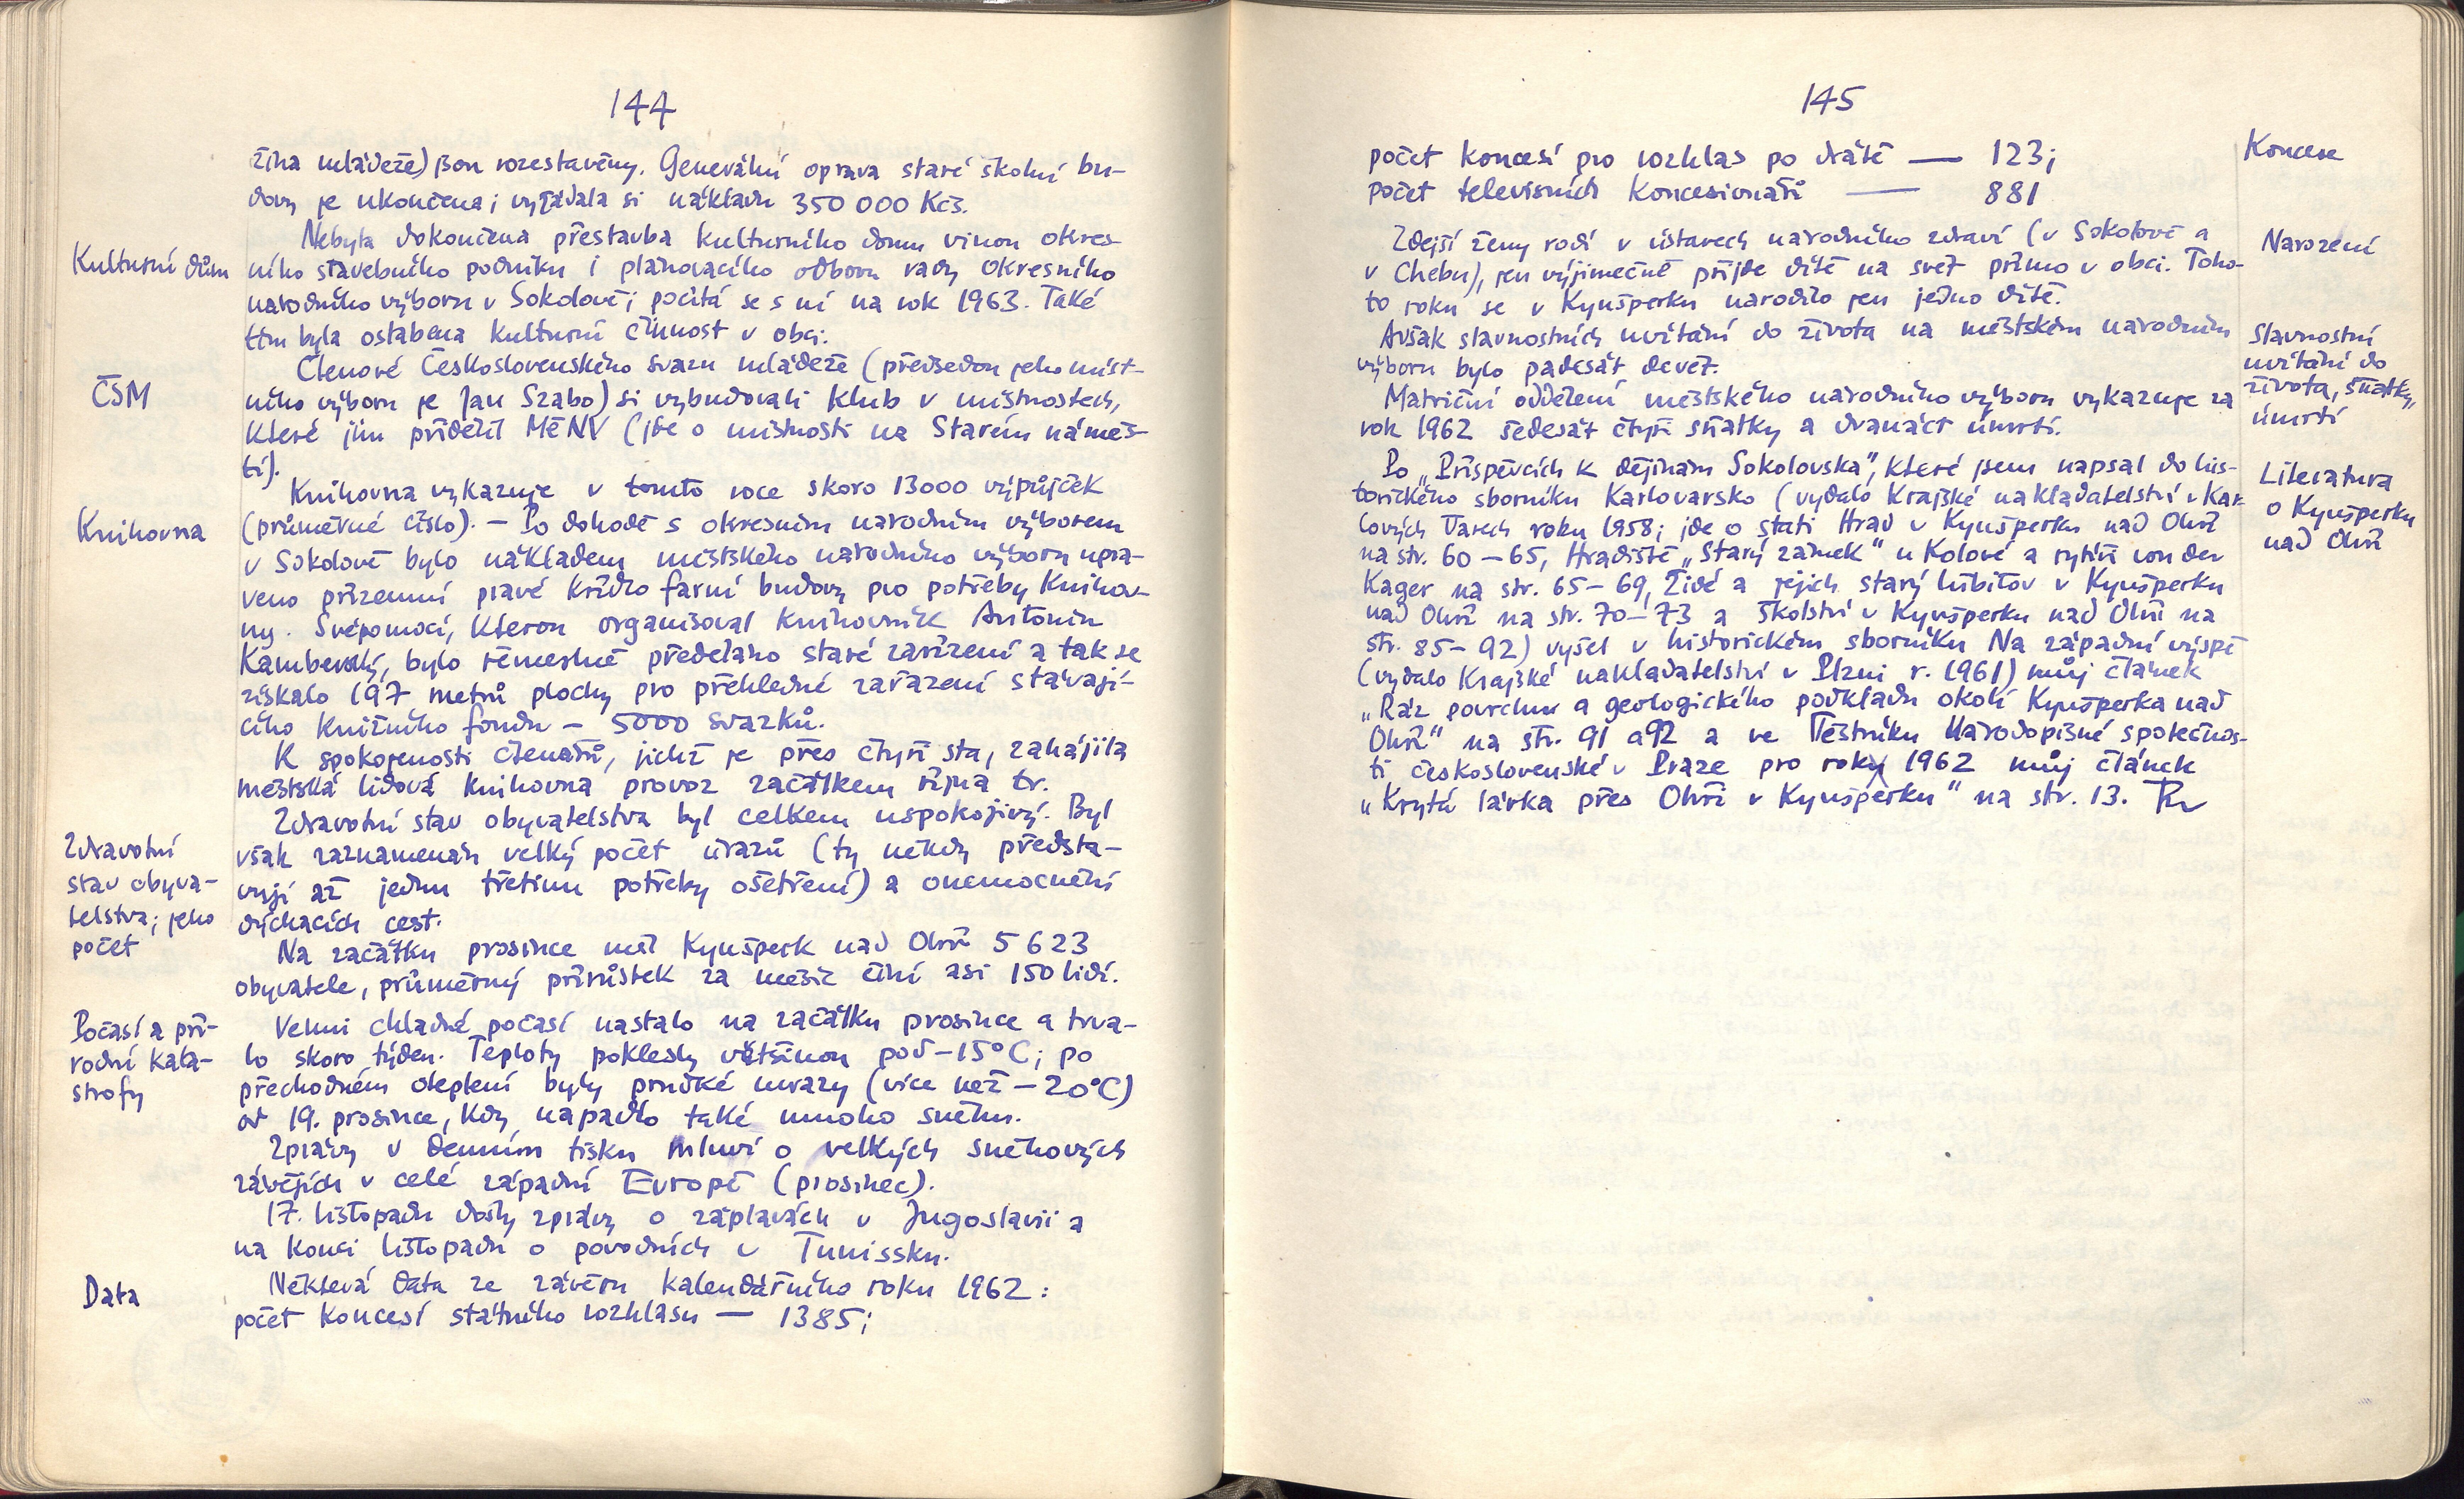 144
žina mládeže) jsou rozestavěny. Generální oprava staré školní bu-
dovy je ukončena; vyžádala si nákladu 350 000 Kčs.
Kulturní dům
Nebyla dokončena přestavba kulturního domu vinou okres-
ního stavebního podniku i plánovacího odboru rady Okresního
národního výboru v Sokolově; počítá se s ní na rok 1963. Také
tím byla oslabena kulturní činnost v obci.
ČSM
Členové Československého svazu mládeže (předsedou jeho míst-
ního výboru je Jan Szabo) si vybudovali klub v místnostech,
které jim přidělil MěNV (jde o místnosti na Starém náměs-
tí).
Knihovna
Knihovna vykazuje v tomto roce skoro 13000 výpůjček
(průměrné číslo). – Po dohodě s okresním národním výborem
v Sokolově bylo nákladem městského národního výboru upra-
veno přízemní pravé křídlo farní budovy pro potřeby knihov-
ny. Svépomocí, kterou organisoval knihovník Antonín
Kamberský, bylo řemeslně předěláno staré zařízení a tak se
získalo 197 metrů plochy pro přehledné zařazení stávají-
cího knižního fondu – 5000 svazků.
K spokojenosti čtenářů, jichž je přes čtyři sta, zahájila
městská lidová knihovna provoz začátkem října tr.
Zdravotní
stav obyva-
telstva; jeho
počet
Zdravotní stav obyvatelstva byl celkem uspokojivý. Byl
však zaznamenán velký počet úrazů (ty někdy předsta-
vují až jednu třetinu potřeby ošetření) a onemocnění
dýchacích cest.
Na začátku prosince měl Kynšperk nad Ohří 5 623
obyvatele, průměrný přírůstek za měsíc činí asi 150 lidí.
Počasí a pří-
rodní kata-
strofy
Velmi chladné počasí nastalo na začátku prosince a trva-
lo skoro týden. Teploty poklesly většinou pod –15°C; po
přechodném oteplení byly prudké mrazy (více než –20°C)
od 19. prosince, kdy napadlo také mnoho sněhu.
Zprávy v denním tisku mluví o velkých sněhových
závějích v celé západní Evropě (prosinec).
17. listopadu došly zprávy o záplavách v Jugoslavii a
na konci listopadu o povodních v Tunissku.
Data
Některá data ze závěru kalendářního roku 1962:
počet koncesí státního rozhlasu — 1385;
145
Koncese
počet koncesí pro rozhlas po drátě — 123;
počet televisních koncesionářů — 881
Narození
Zdejší ženy rodí v ústavech národního zdraví (v Sokolově a
v Chebu), jen výjimečně přijde dítě na svět přímo v obci. Toho-
to roku se v Kynšperku narodilo jen jedno dítě.
Slavnostní
uvítání do
života, sňatky,
úmrtí
Avšak slavnostních uvítání do života na městském národním
výboru bylo padesát devět.
Matriční oddělení městského národního výboru vykazuje za
rok 1962 šedesát čtyři sňatky a dvanáct úmrtí.
Literatura
o Kynšperku
nad Ohří
Po „Příspěvcích k dějinám Sokolovska", které jsem napsal do his-
torického sborníku Karlovarsko (vydalo Krajské nakladatelství v Kar-
lových Varech roku 1958; jde o stati Hrad v Kynšperku nad Ohří
na str. 60–65, Hradiště „Starý zámek" u Kolové a rytíři von der
Kager na str. 65–69, Židé a jejich starý hřbitov v Kynšperku
nad Ohří na str. 70–73 a Školství v Kynšperku nad Ohří na
str. 85–92) vyšel v historickém sborníku Na západní výspě
(vydalo Krajské nakladatelství v Plzni r. 1961) můj článek
„Ráz povrchu a geologického podkladu okolí Kynšperka nad
Ohří" na str. 91 a 92 a ve Věstníku Národopisné společnos-
ti československé v Praze pro rok 1962 můj článek
„Krytá lávka přes Ohři v Kynšperku" na str. 13.